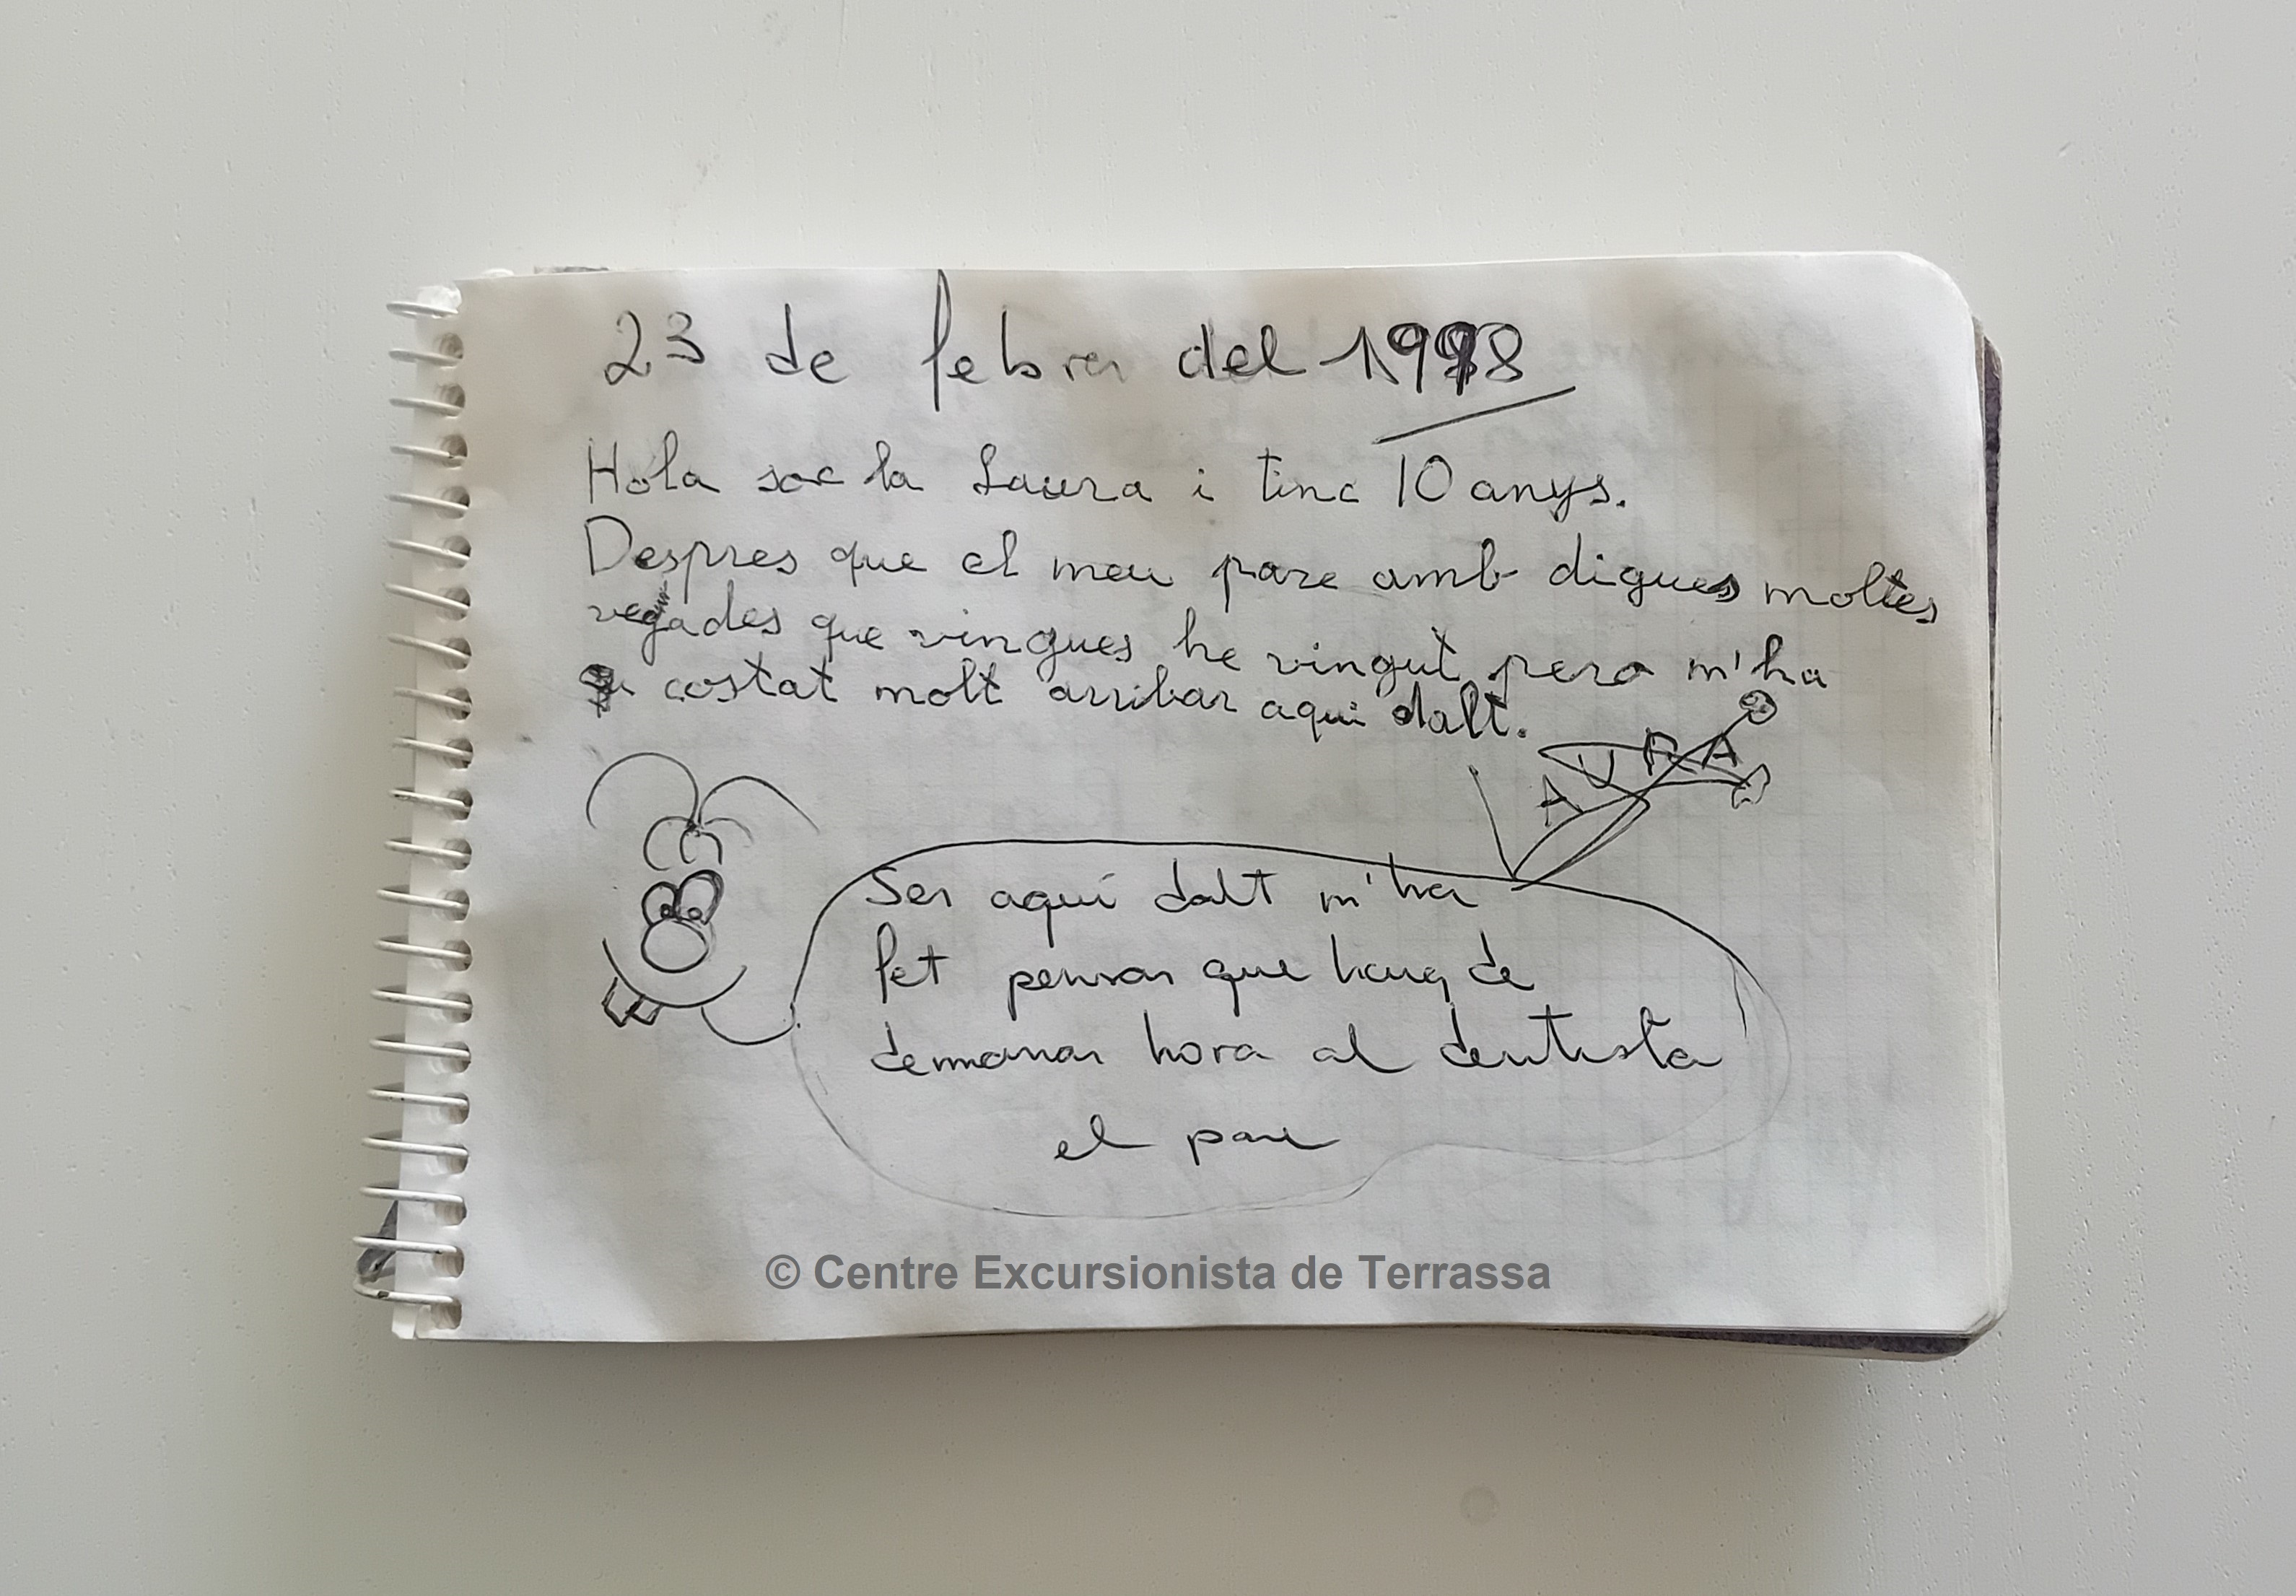 23 de febrer del 1998
Hola soc la Laura i tinc 10 anys.
Despres que el meu pare amb digues moltes
vegades que vingues he vingut pero m'ha
costat molt arribar aqui dalt.
LAURA
Ser aquí dalt m'ha
fet pensar que haig de
demanar hora al dentista
el pare
© Centre Excursionista de Terrassa